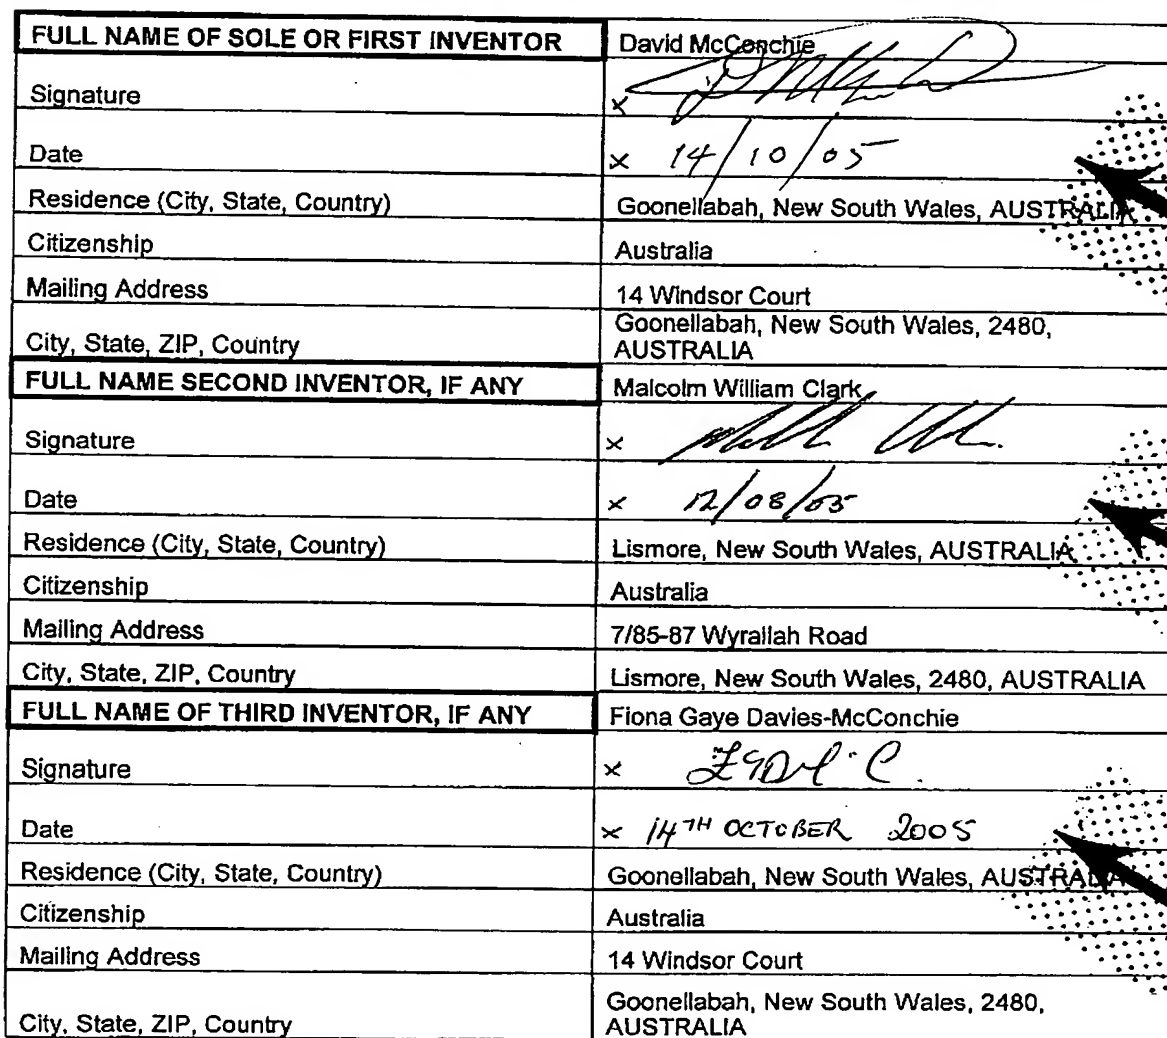 FULL NAME OF SOLE OR FIRST INVENTOR David McConchie
Signature x
Date x 14/10/05
Residence (City, State, Country) Goonellabah, New South Wales, AUSTRALIA
Citizenship Australia
Mailing Address 14 Windsor Court
City, State, ZIP, Country Goonellabah, New South Wales, 2480,
AUSTRALIA
FULL NAME SECOND INVENTOR, IF ANY Malcolm William Clark
Signature x
Date x 12/08/05
Residence (City, State, Country) Lismore, New South Wales, AUSTRALIA
Citizenship Australia
Mailing Address 7/85-87 Wyrallah Road
City, State, ZIP, Country Lismore, New South Wales, 2480, AUSTRALIA
FULL NAME OF THIRD INVENTOR, IF ANY Fiona Gaye Davies-McConchie
Signature x
Date x 14TH OCTOBER 2005
Residence (City, State, Country) Goonellabah, New South Wales, AUSTRALIA
Citizenship Australia
Mailing Address 14 Windsor Court
City, State, ZIP, Country Goonellabah, New South Wales, 2480,
AUSTRALIA